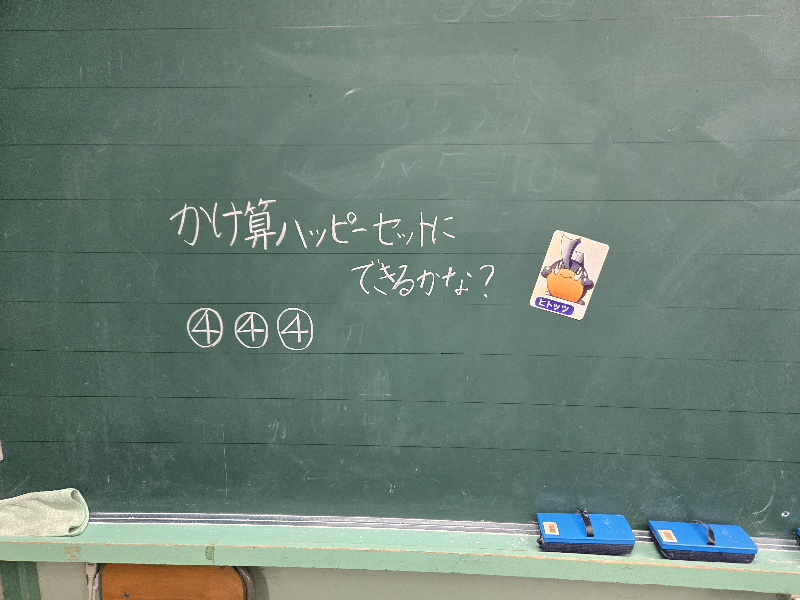 かけ算ハッピーセットに
できるかな?
ヒトッツ
④④④